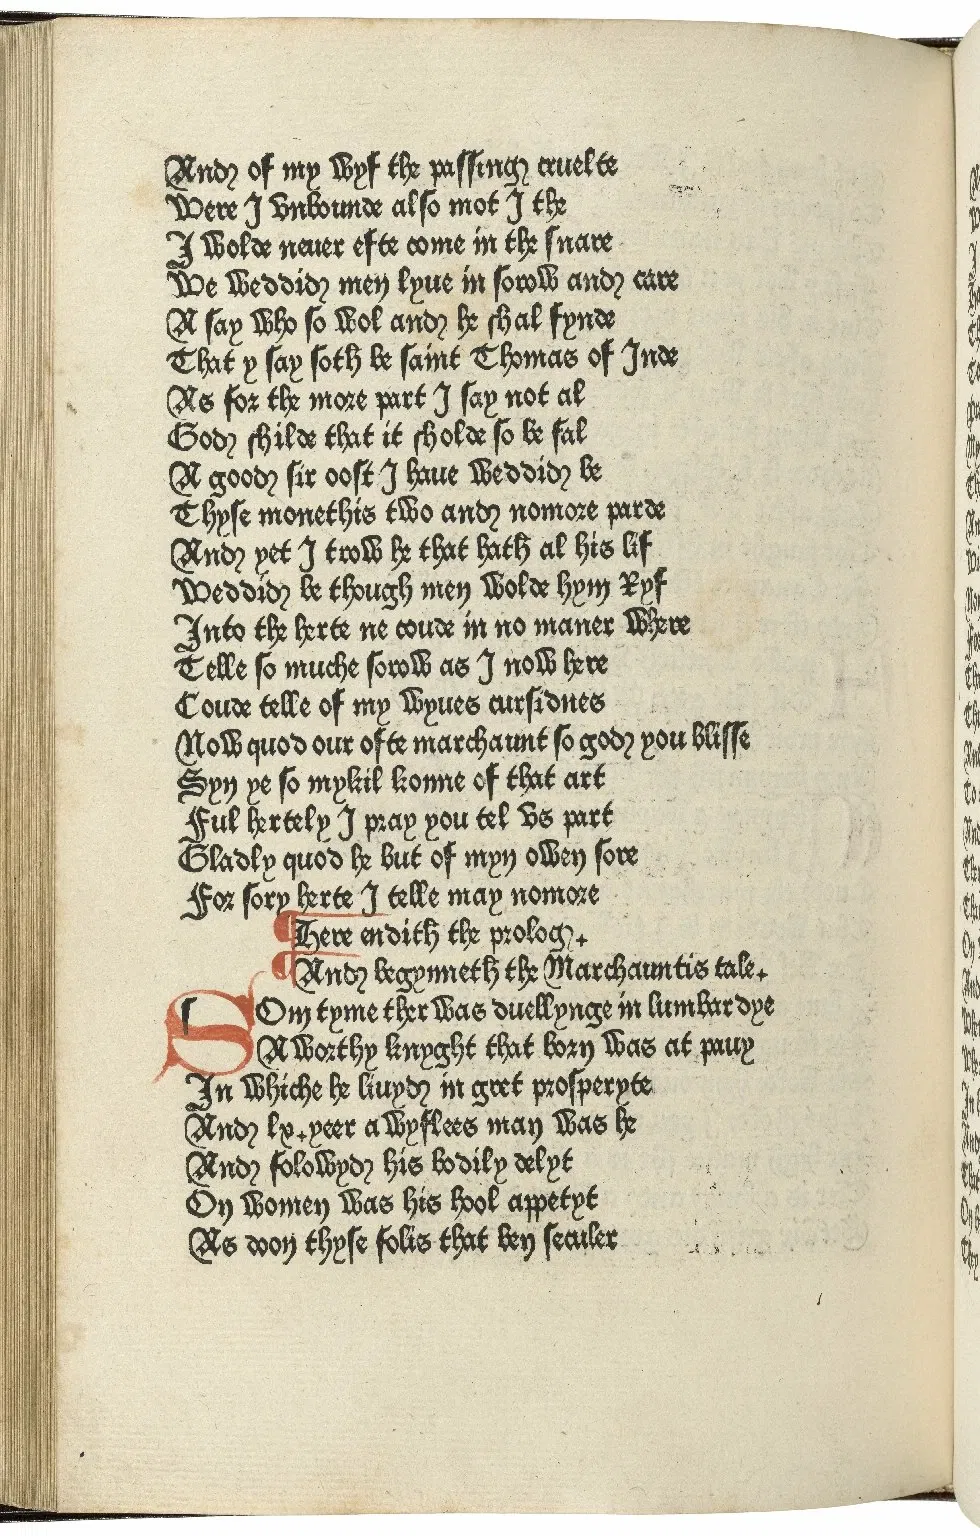 And of my wyf the passing cruelte
Were I vnbounde also mot I the
I wolde neuer efte come in the snare
We weddid men lyue in sorow and care
A say who so wol and he shal fynde
That y say soth be saint Thomas of Inde
As for the more part I say not al
God shilde that it sholde so be fal
A good sir oost I haue weddid be
Thyse monethis two and nomore parde
And yet I trow he that hath al his lif
Weddid be though men wolde hym Ryf
Into the herte ne coude in no maner where
Telle so muche sorow as I now here
Coude telle of my wyues cursidnes
Now quod our oste marchaunt so god you blisse
Syn ye so mykil konne of that art
Ful hertely I pray you tel vs part
Gladly quod he but of myn owen sore
For sory herte I telle may nomore
There endith the prolog.
And begynneth the Marchauntis tale.
SOm tyme ther was duellynge in lumbardye
A worthy knyght that born was at pauy
In whiche he liuyd in gret prosperyte
And lx.yeer a wyflees man was he
And folowyd his bodily delyt
On women was his hool appetyt
As doon thyse folis that ben seculer